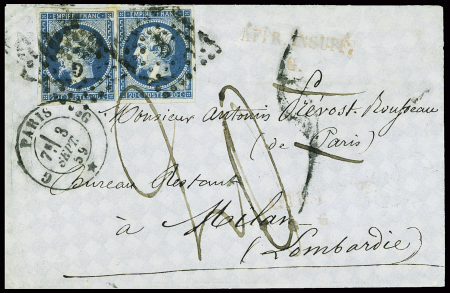 EMPIRE FRANC. EMPIRE FRANC.
20 C. POSTES 20 C.
AFFR. INSUFF.
PARIS G
7E 3
SEPT
59
G
Monsieur Antonin Prévost-Rousseau
(de Paris)
Bureau Restant
à Milan
(Lombardie)